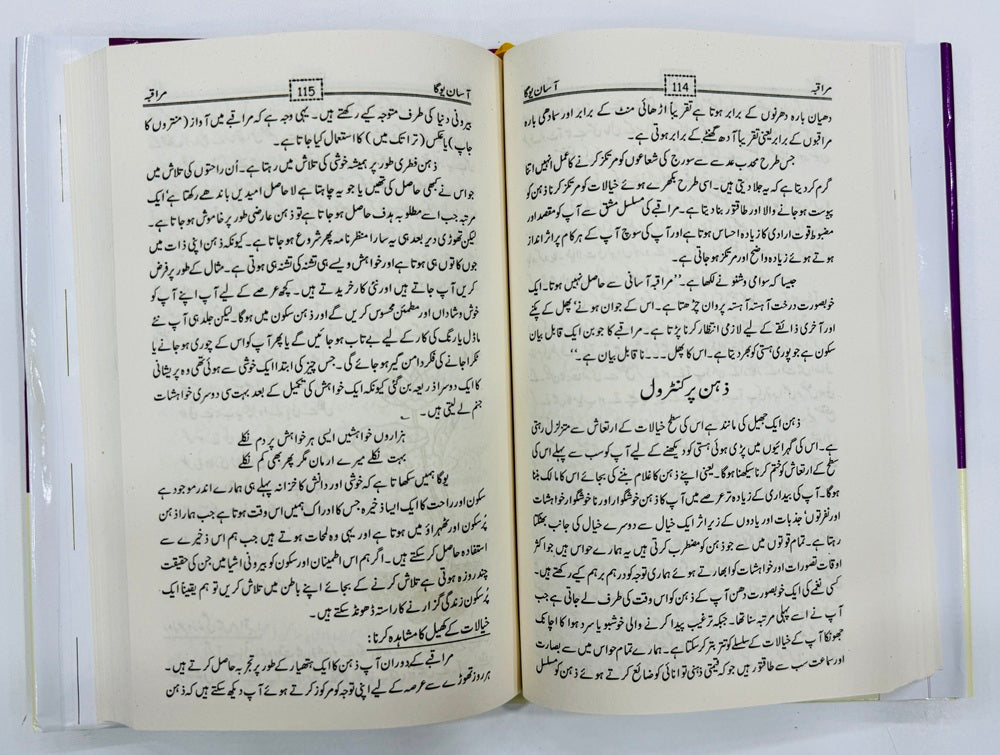 مراقبہ 114 آسان یوگا
دھیان بارہ دھرنوں کے برابر ہوتا ہے تقریباً اڑھائی منٹ کے برابر اور سمادھی بارہ
مراقبوں کے برابر یعنی تقریباً آدھ گھنٹے کے برابر ہوتی ہے۔
جس طرح محدب عدسے سے سورج کی شعاعوں کو مرتکز کرنے کا عمل انہیں اتنا
گرم کر دیتا ہے کہ یہ جلا دیتی ہیں۔ اسی طرح بکھرے ہوئے خیالات کا مرتکز کرنا ذہن کو
پیوست ہو جانے والا اور طاقتور بنا دیتا ہے۔ مراقبے کی مسلسل مشق سے آپ کو مقصد اور
مضبوط قوت ارادی کا زیادہ احساس ہوتا ہے اور آپ کی سوچ آپ کے ہر کام پر اثر انداز
ہوتے ہوئے زیادہ واضح اور مرتکز ہو جاتی ہے۔
جیسا کہ سوامی وشنو نے لکھا ہے۔ ''مراقبہ آسانی سے حاصل نہیں ہوتا۔ ایک
خوبصورت درخت آہستہ آہستہ پروان چڑھتا ہے۔ اس کے جوان ہونے' پھل کے پکنے
اور آخری ذائقے کے لیے لازمی انتظار کرنا پڑتا ہے۔ مراقبے کا جوبن ایک قابل بیان
سکون ہے جو پوری ہستی کو بھر دیتا ہے۔ اس کا پھل۔۔۔ نا قابل بیان ہے۔''
ذہن پر کنٹرول
ذہن ایک جھیل کی مانند ہے اس کی سطح خیالات کے ارتعاش سے متزلزل رہتی
ہے۔ اس کی گہرائیوں میں پڑی ہوئی ہستی کو دیکھنے کے لیے آپ کو سب سے پہلے اس کی
سطح کے ارتعاش کو ختم کرنا سیکھنا ہوگا۔ یعنی اپنے ذہن کا غلام بننے کی بجائے اس کا مالک بننا
ہوگا۔ آپ کی بیداری کے زیادہ تر عرصے میں آپ کا ذہن خوشگوار اور نا خوشگوار خواہشات
اور نفرتوں' جذبات اور یادوں کے زیر اثر ایک خیال سے دوسرے خیال کی جانب بھٹکتا
رہتا ہے۔ تمام قوتوں میں سے جو ذہن کو مضطرب کرتی ہیں یہ ہمارے حواس ہیں جو اکثر
اوقات تصورات اور خواہشات کو ابھارتے ہوئے ہماری توجہ کو درہم برہم کیے رکھتے ہیں۔
کسی نغمے کی ایک خوبصورت دھن آپ کے ذہن کو اس وقت کی طرف لے جاتی ہے جب
آپ نے اسے پہلی مرتبہ سنا تھا۔ جبکہ ترغیب پیدا کرنے والی خوشبو یا سرد ہوا کا اچانک
جھونکا آپ کے خیالات کے سلسلے کو تتر بتر کر سکتا ہے۔ ہمارے تمام حواس میں سے بصارت
اور سماعت سب سے طاقتور ہیں جو کہ قیمتی ذہنی توانائی کو ضائع کرتے ہوئے ذہن کو مسلسل
آسان یوگا 115 مراقبہ
بیرونی دنیا کی طرف متوجہ کیے رکھتے ہیں۔ یہی وجہ ہے کہ مراقبے میں آواز (منتروں کا
جاپ) یا عکس (تراتک میں) کا استعمال کیا جاتا ہے۔
ذہن فطری طور پر ہمیشہ خوشی کی تلاش میں رہتا ہے۔ اُن راحتوں کی تلاش میں
جو اس نے کبھی حاصل کی تھیں یا جو یہ چاہتا ہے لا حاصل امیدیں باندھے رکھتا ہے' ایک
مرتبہ جب اسے مطلوبہ ہدف حاصل ہو جاتا ہے تو ذہن عارضی طور پر خاموش ہو جاتا ہے۔
لیکن تھوڑی دیر بعد ہی یہ سارا منظر نامہ پھر شروع ہو جاتا ہے۔ کیونکہ ذہن اپنی ذات میں
جوں کا توں ہی ہوتا ہے اور خواہش ویسے ہی تشنہ کی تشنہ ہی ہوتی ہے۔ مثال کے طور پر فرض
کریں آپ جاتے ہیں اور نئی کار خریدتے ہیں۔ کچھ عرصے کے لیے آپ اپنے آپ کو
خوش و شاداں اور مطمئن محسوس کریں گے اور ذہن سکون میں ہوگا۔ لیکن جلد ہی آپ نئے
ماڈل یا رنگ کی کار کے لیے بے تاب ہو جائیں گے یا پھر آپ کو اس کے چوری ہونے یا
ٹکرا جانے کی فکر دامن گیر ہو جائے گی۔ جس چیز کی ابتدا ایک خوشی سے ہوئی تھی وہ پریشانی
کا ایک دوسرا ذریعہ بن گئی کیونکہ ایک خواہش کی تکمیل کے بعد بہت سی دوسری خواہشات
جنم لے لیتی ہیں۔
ہزاروں خواہشیں ایسی ہر خواہش پر دم نکلے
بہت نکلے میرے ارمان مگر پھر بھی کم نکلے
یوگا ہمیں سکھاتا ہے کہ خوشی اور دانش کا خزانہ پہلے ہی ہمارے اندر موجود ہے
سکون اور راحت کا ایک ایسا ذخیرہ جس کا ادراک ہمیں اس وقت ہوتا ہے جب ہمارا ذہن
پُرسکون اور ٹھہراؤ میں ہوتا ہے اور یہی وہ لمحات ہوتے ہیں جب ہم اس ذخیرے سے
استفادہ حاصل کر سکتے ہیں۔ اگر ہم اس اطمینان اور سکون کو بیرونی اشیا میں جن کی حقیقت
چند روزہ ہوتی ہے تلاش کرنے کے بجائے اپنے باطن میں تلاش کریں تو ہم یقیناً ایک
پُرسکون زندگی گزارنے کا راستہ ڈھونڈ سکتے ہیں۔
خیالات کے کھیل کا مشاہدہ کرنا:
مراقبے کے دوران آپ ذہن کا ایک ہتھیار کے طور پر تجربہ حاصل کرتے ہیں۔
ہر روز تھوڑے سے عرصہ کے لیے اپنی توجہ کو مرکوز کرتے ہوئے آپ دیکھ سکتے ہیں کہ ذہن